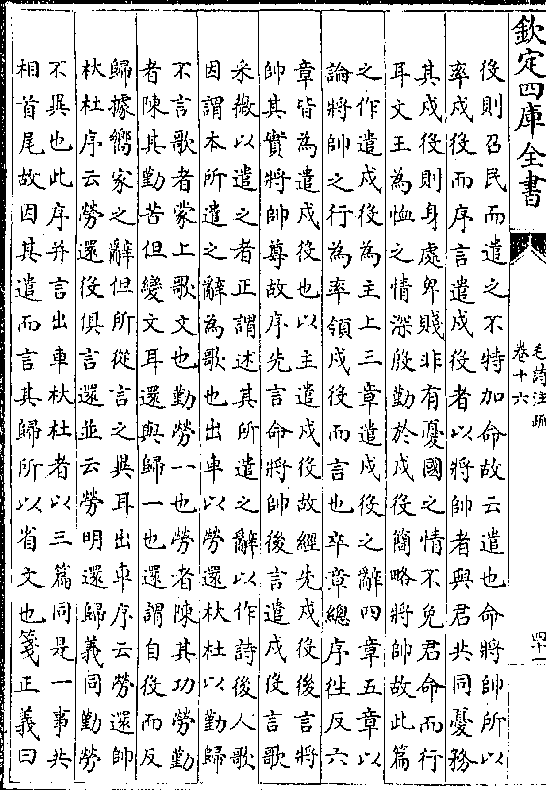 欽定四庫全書
毛詩注疏
卷十六
四十一
役則召民而遣之不特加命故云遣也命將帥所以
率戍役而序言遣戍役者以將帥者與君共同憂務
其戍役則身處卑賤非有憂國之情不免君命而行
耳文王為恤之情深殷勤於戍役簡略將帥故此篇
之作遣戍役為主上三章遣戍役之辭四章五章以
論將帥之行為率領戍役而言也卒章總序徃反六
章皆為遣戍役也以主遣戍役故經先戍役後言將
帥其實將帥尊故序先言命將帥後言遣戍役言歌
采薇以遣之者正謂述其所遣之辭以作詩後人歌
因謂本所遣之辭為歌也出車以勞還杕杜以勤歸
不言歌者蒙上歌文也勤勞一也勞者陳其功勞勤
者陳其勤苦但變文耳還與歸一也還謂自役而反
歸據嚮家之辭但所從言之異耳出車序云勞還帥
杕杜序云勞還役俱言還並云勞明還歸義同勤勞
不異也此序并言出車杕杜者以三篇同是一事共
相首尾故因其遣而言其歸所以省文也箋正義曰